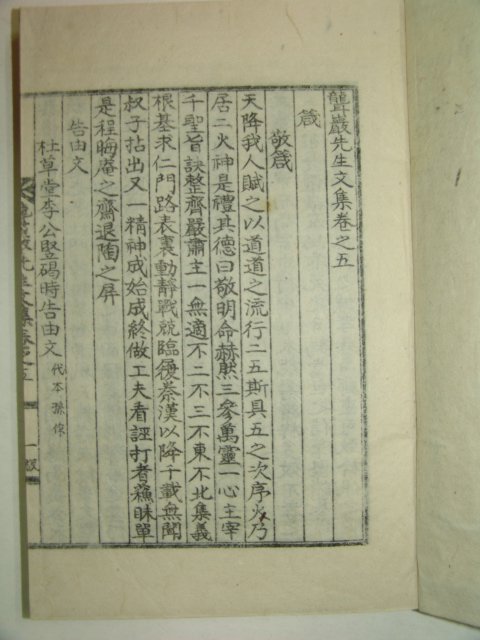 聾巖先生文集卷之五
箴
敬箴
天降我人賦之以道道之流行二五斯具五之次序火乃
居二火神是禮其德曰敬明命赫然三參萬靈一心主宰
千聖旨訣整齊嚴肅主一無適不二不三不東不北集義
根基求仁門路表裏動靜戰兢臨履秦漢以降千載無聞
叔子拈出又一精神成始成終做工夫看誣打者蘓昧單
是程晦庵之齋退陶之屏
告由文
杜草堂李公竪碣時告由文 代本孫作
先生文集卷之五 一